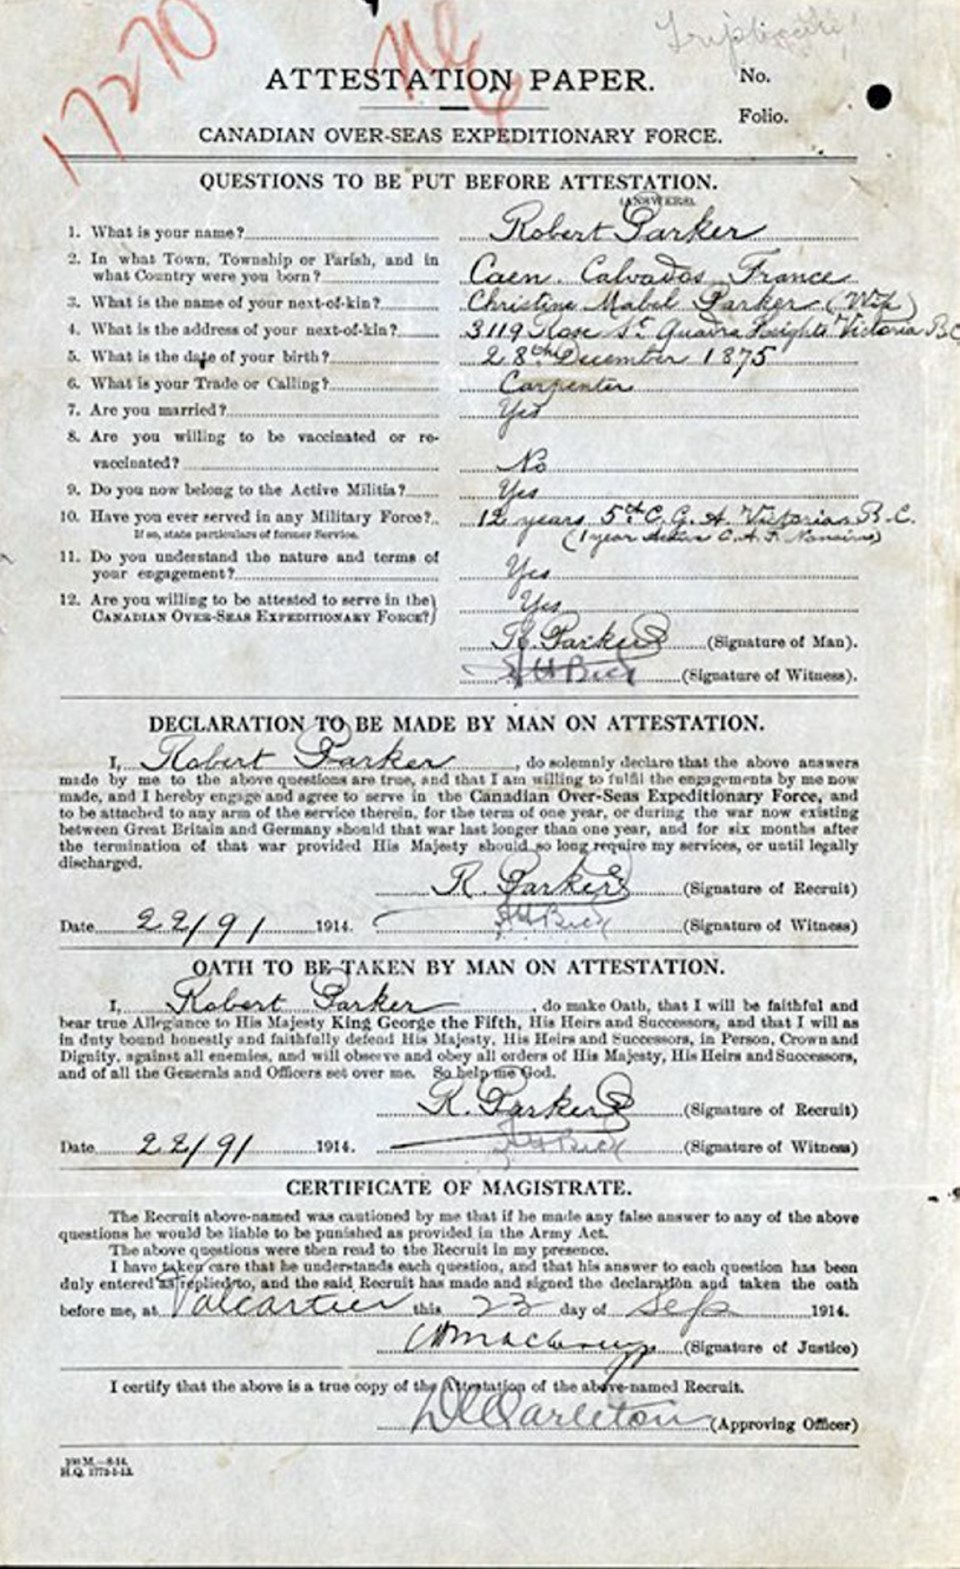 Triplicate
17270
ATTESTATION PAPER.
No.
Folio.
CANADIAN OVER-SEAS EXPEDITIONARY FORCE.
QUESTIONS TO BE PUT BEFORE ATTESTATION.
(ANSWERS).
1. What is your name? Robert Parker
2. In what Town, Township or Parish, and in
what Country were you born? Caen. Calvados France
3. What is the name of your next-of-kin? Christine Mabel Parker (Wife)
4. What is the address of your next-of-kin? 3119 Rose St Quadra Heights Victoria BC
5. What is the date of your birth? 28th December 1875
6. What is your Trade or Calling? Carpenter
7. Are you married? Yes
8. Are you willing to be vaccinated or re-
vaccinated? No
9. Do you now belong to the Active Militia? Yes
10. Have you ever served in any Military Force? 12 years 5th C. G. A. Victoria B.C.
If so, state particulars of former Service. (1 year C. A. F. Nanaimo)
11. Do you understand the nature and terms of
your engagement? Yes
12. Are you willing to be attested to serve in the
CANADIAN OVER-SEAS EXPEDITIONARY FORCE? } Yes
R. Parker (Signature of Man).
(Signature of Witness).
DECLARATION TO BE MADE BY MAN ON ATTESTATION.
I, Robert Parker, do solemnly declare that the above answers
made by me to the above questions are true, and that I am willing to fulfil the engagements by me now
made, and I hereby engage and agree to serve in the Canadian Over-Seas Expeditionary Force, and
to be attached to any arm of the service therein, for the term of one year, or during the war now existing
between Great Britain and Germany should that war last longer than one year, and for six months after
the termination of that war provided His Majesty should so long require my services, or until legally
discharged.
R. Parker (Signature of Recruit)
Date 22/9/ 1914. (Signature of Witness)
OATH TO BE TAKEN BY MAN ON ATTESTATION.
I, Robert Parker, do make Oath, that I will be faithful and
bear true Allegiance to His Majesty King George the Fifth, His Heirs and Successors, and that I will as
in duty bound honestly and faithfully defend His Majesty, His Heirs and Successors, in Person, Crown and
Dignity, against all enemies, and will observe and obey all orders of His Majesty, His Heirs and Successors,
and of all the Generals and Officers set over me. So help me God.
R. Parker (Signature of Recruit)
Date 22/9/ 1914. (Signature of Witness)
CERTIFICATE OF MAGISTRATE.
The Recruit above-named was cautioned by me that if he made any false answer to any of the above
questions he would be liable to be punished as provided in the Army Act.
The above questions were then read to the Recruit in my presence.
I have taken care that he understands each question, and that his answer to each question has been
duly entered as replied to, and the said Recruit has made and signed the declaration and taken the oath
before me, at Valcartier this 23 day of Sep 1914.
(Signature of Justice)
I certify that the above is a true copy of the Attestation of the above-named Recruit.
(Approving Officer)
100 M.—8-14.
H.Q. 1772-1-13.